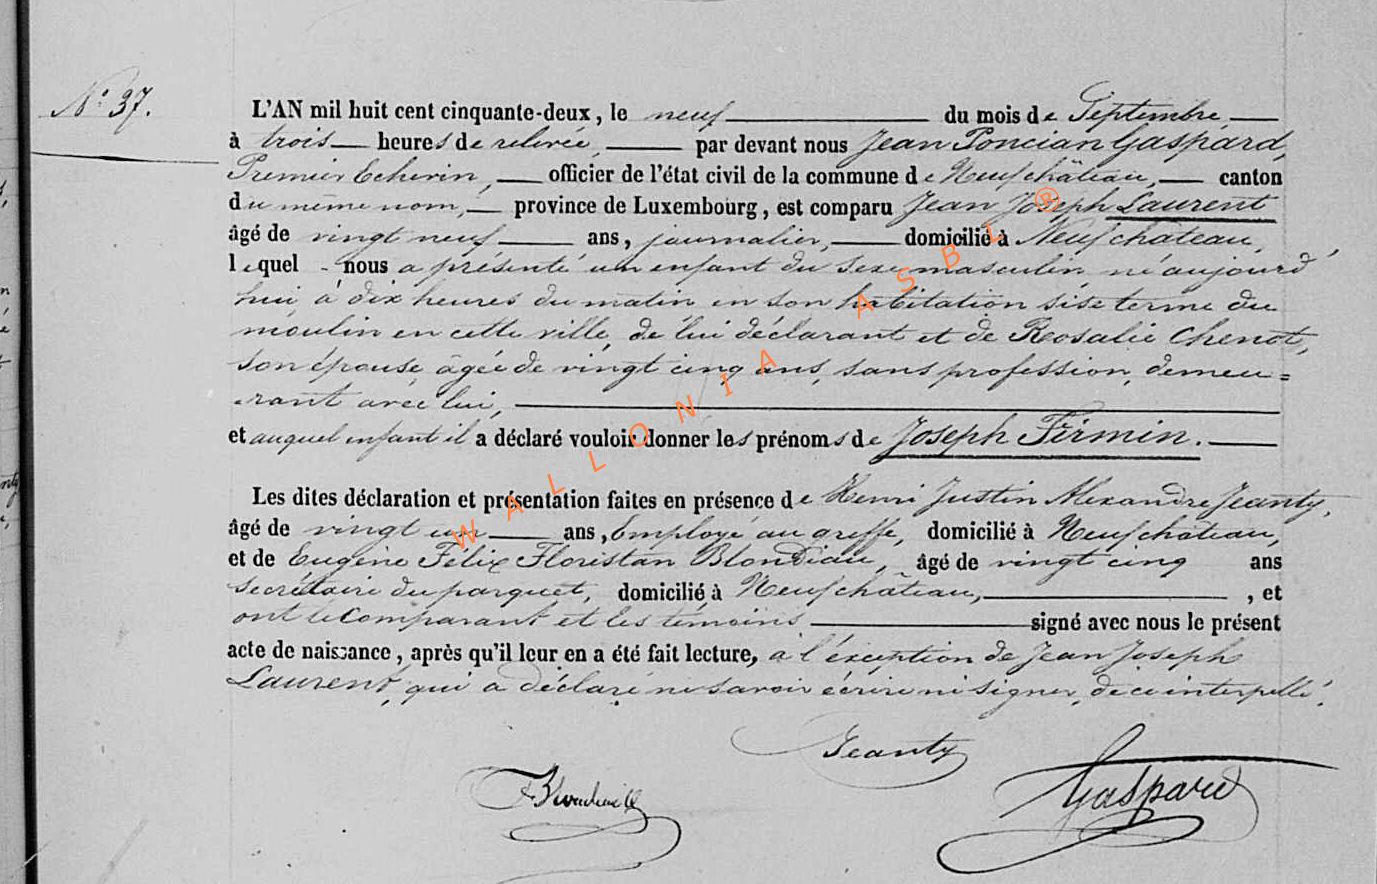 N° 37.
L'AN mil huit cent cinquante-deux, le neuf du mois de Septembre
à trois heures de relevée, par devant nous Jean Poncian Gaspard,
Premier Echevin, officier de l'état civil de la commune de Neufchâteau, canton
du même nom, province de Luxembourg, est comparu Jean Joseph Laurent
âgé de vingt neuf ans, journalier, domicilié à Neufchateau,
lequel nous a présenté un enfant du sexe masculin, né aujourd'
hui à dix heures du matin en son habitation sise terme du
moulin en cette ville, de lui déclarant et de Rosalie Chenot,
son épouse, âgée de vingt cinq ans, sans profession, demeu=
rant avec lui,
et auquel enfant il a déclaré vouloir donner les prénoms de Joseph Firmin.
Les dites déclaration et présentation faites en présence de Henri Justin Alexandre Jeanty,
âgé de vingt un ans, Employé au greffe domicilié à Neufchâteau,
et de Eugène Felix Floristan Blondiau, âgé de vingt cinq ans
secrétaire du parquet, domicilié à Neufchâteau, , et
ont le comparant et les témoins signé avec nous le présent
acte de naissance, après qu'il leur en a été fait lecture, à l'exception de Jean Joseph
Laurent, qui a déclaré ne savoir écrire ni signer, de ce interpellé.
Jeanty
Gaspard
WALLONIA ASBL ®